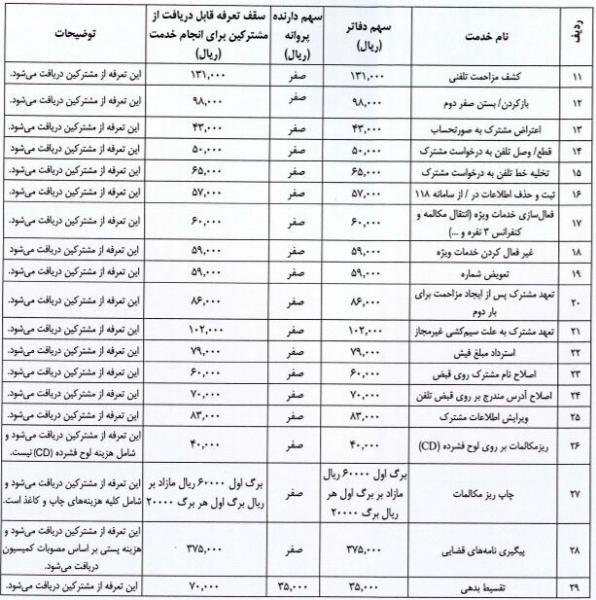 ردیف | نام خدمت | سهم دفاتر (ریال) | سهم دارنده پروانه (ریال) | سقف تعرفه قابل دریافت از مشترکین برای انجام خدمت (ریال) | توضیحات
۱۱ | کشف مزاحمت تلفنی | ۱۳۱,۰۰۰ | صفر | ۱۳۱,۰۰۰ | این تعرفه از مشترکین دریافت می‌شود.
۱۲ | بازکردن/ بستن صفر دوم | ۹۸,۰۰۰ | صفر | ۹۸,۰۰۰ | این تعرفه از مشترکین دریافت می‌شود.
۱۳ | اعتراض مشترک به صورتحساب | ۴۳,۰۰۰ | صفر | ۴۳,۰۰۰ | این تعرفه از مشترکین دریافت می‌شود.
۱۴ | قطع/ وصل تلفن به درخواست مشترک | ۵۰,۰۰۰ | صفر | ۵۰,۰۰۰ | این تعرفه از مشترکین دریافت می‌شود.
۱۵ | تخلیه خط تلفن به درخواست مشترک | ۶۵,۰۰۰ | صفر | ۶۵,۰۰۰ | این تعرفه از مشترکین دریافت می‌شود.
۱۶ | ثبت و حذف اطلاعات در / از سامانه ۱۱۸ | ۵۷,۰۰۰ | صفر | ۵۷,۰۰۰ | این تعرفه از مشترکین دریافت می‌شود.
۱۷ | فعال‌سازی خدمات ویژه (انتقال مکالمه و کنفرانس ۳ نفره و ...) | ۶۰,۰۰۰ | صفر | ۶۰,۰۰۰ | این تعرفه از مشترکین دریافت می‌شود.
۱۸ | غیر فعال کردن خدمات ویژه | ۵۹,۰۰۰ | صفر | ۵۹,۰۰۰ | این تعرفه از مشترکین دریافت می‌شود
۱۹ | تعویض شماره | ۵۹,۰۰۰ | صفر | ۵۹,۰۰۰ | این تعرفه از مشترکین دریافت می‌شود.
۲۰ | تعهد مشترک پس از ایجاد مزاحمت برای بار دوم | ۸۶,۰۰۰ | صفر | ۸۶,۰۰۰ | این تعرفه از مشترکین دریافت می‌شود.
۲۱ | تعهد مشترک به علت سیم‌کشی غیرمجاز | ۱۰۲,۰۰۰ | صفر | ۱۰۲,۰۰۰ | این تعرفه از مشترکین دریافت می‌شود.
۲۲ | استرداد مبلغ فیش | ۷۹,۰۰۰ | صفر | ۷۹,۰۰۰ | این تعرفه از مشترکین دریافت می‌شود.
۲۳ | اصلاح نام مشترک روی قبض | ۶۰,۰۰۰ | صفر | ۶۰,۰۰۰ | این تعرفه از مشترکین دریافت می‌شود.
۲۴ | اصلاح آدرس مندرج بر روی قبض تلفن | ۷۰,۰۰۰ | صفر | ۷۰,۰۰۰ | این تعرفه از مشترکین دریافت می‌شود.
۲۵ | ویرایش اطلاعات مشترک | ۸۳,۰۰۰ | صفر | ۸۳,۰۰۰ | این تعرفه از مشترکین دریافت می‌شود.
۲۶ | ریزمکالمات بر روی لوح فشرده (CD) | ۴۰,۰۰۰ | صفر | ۴۰,۰۰۰ | این تعرفه از مشترکین دریافت می‌شود و شامل هزینه لوح فشرده (CD) نیست.
۲۷ | چاپ ریز مکالمات | برگ اول ۶۰۰۰۰ ریال مازاد بر برگ اول هر برگ ۲۰۰۰۰ ریال | صفر | برگ اول ۶۰۰۰۰ ریال مازاد بر برگ اول هر برگ ۲۰۰۰۰ ریال | این تعرفه از مشترکین دریافت می‌شود و شامل کلیه هزینه‌های چاپ و کاغذ است.
۲۸ | پیگیری نامه‌های قضایی | ۳۷۵,۰۰۰ | صفر | ۳۷۵,۰۰۰ | این تعرفه از مشترکین دریافت می‌شود و هزینه پستی بر اساس مصوبات کمیسیون دریافت می‌شود.
۲۹ | تقسیط بدهی | ۳۵,۰۰۰ | ۳۵,۰۰۰ | ۷۰,۰۰۰ | این تعرفه از مشترکین دریافت می‌شود.